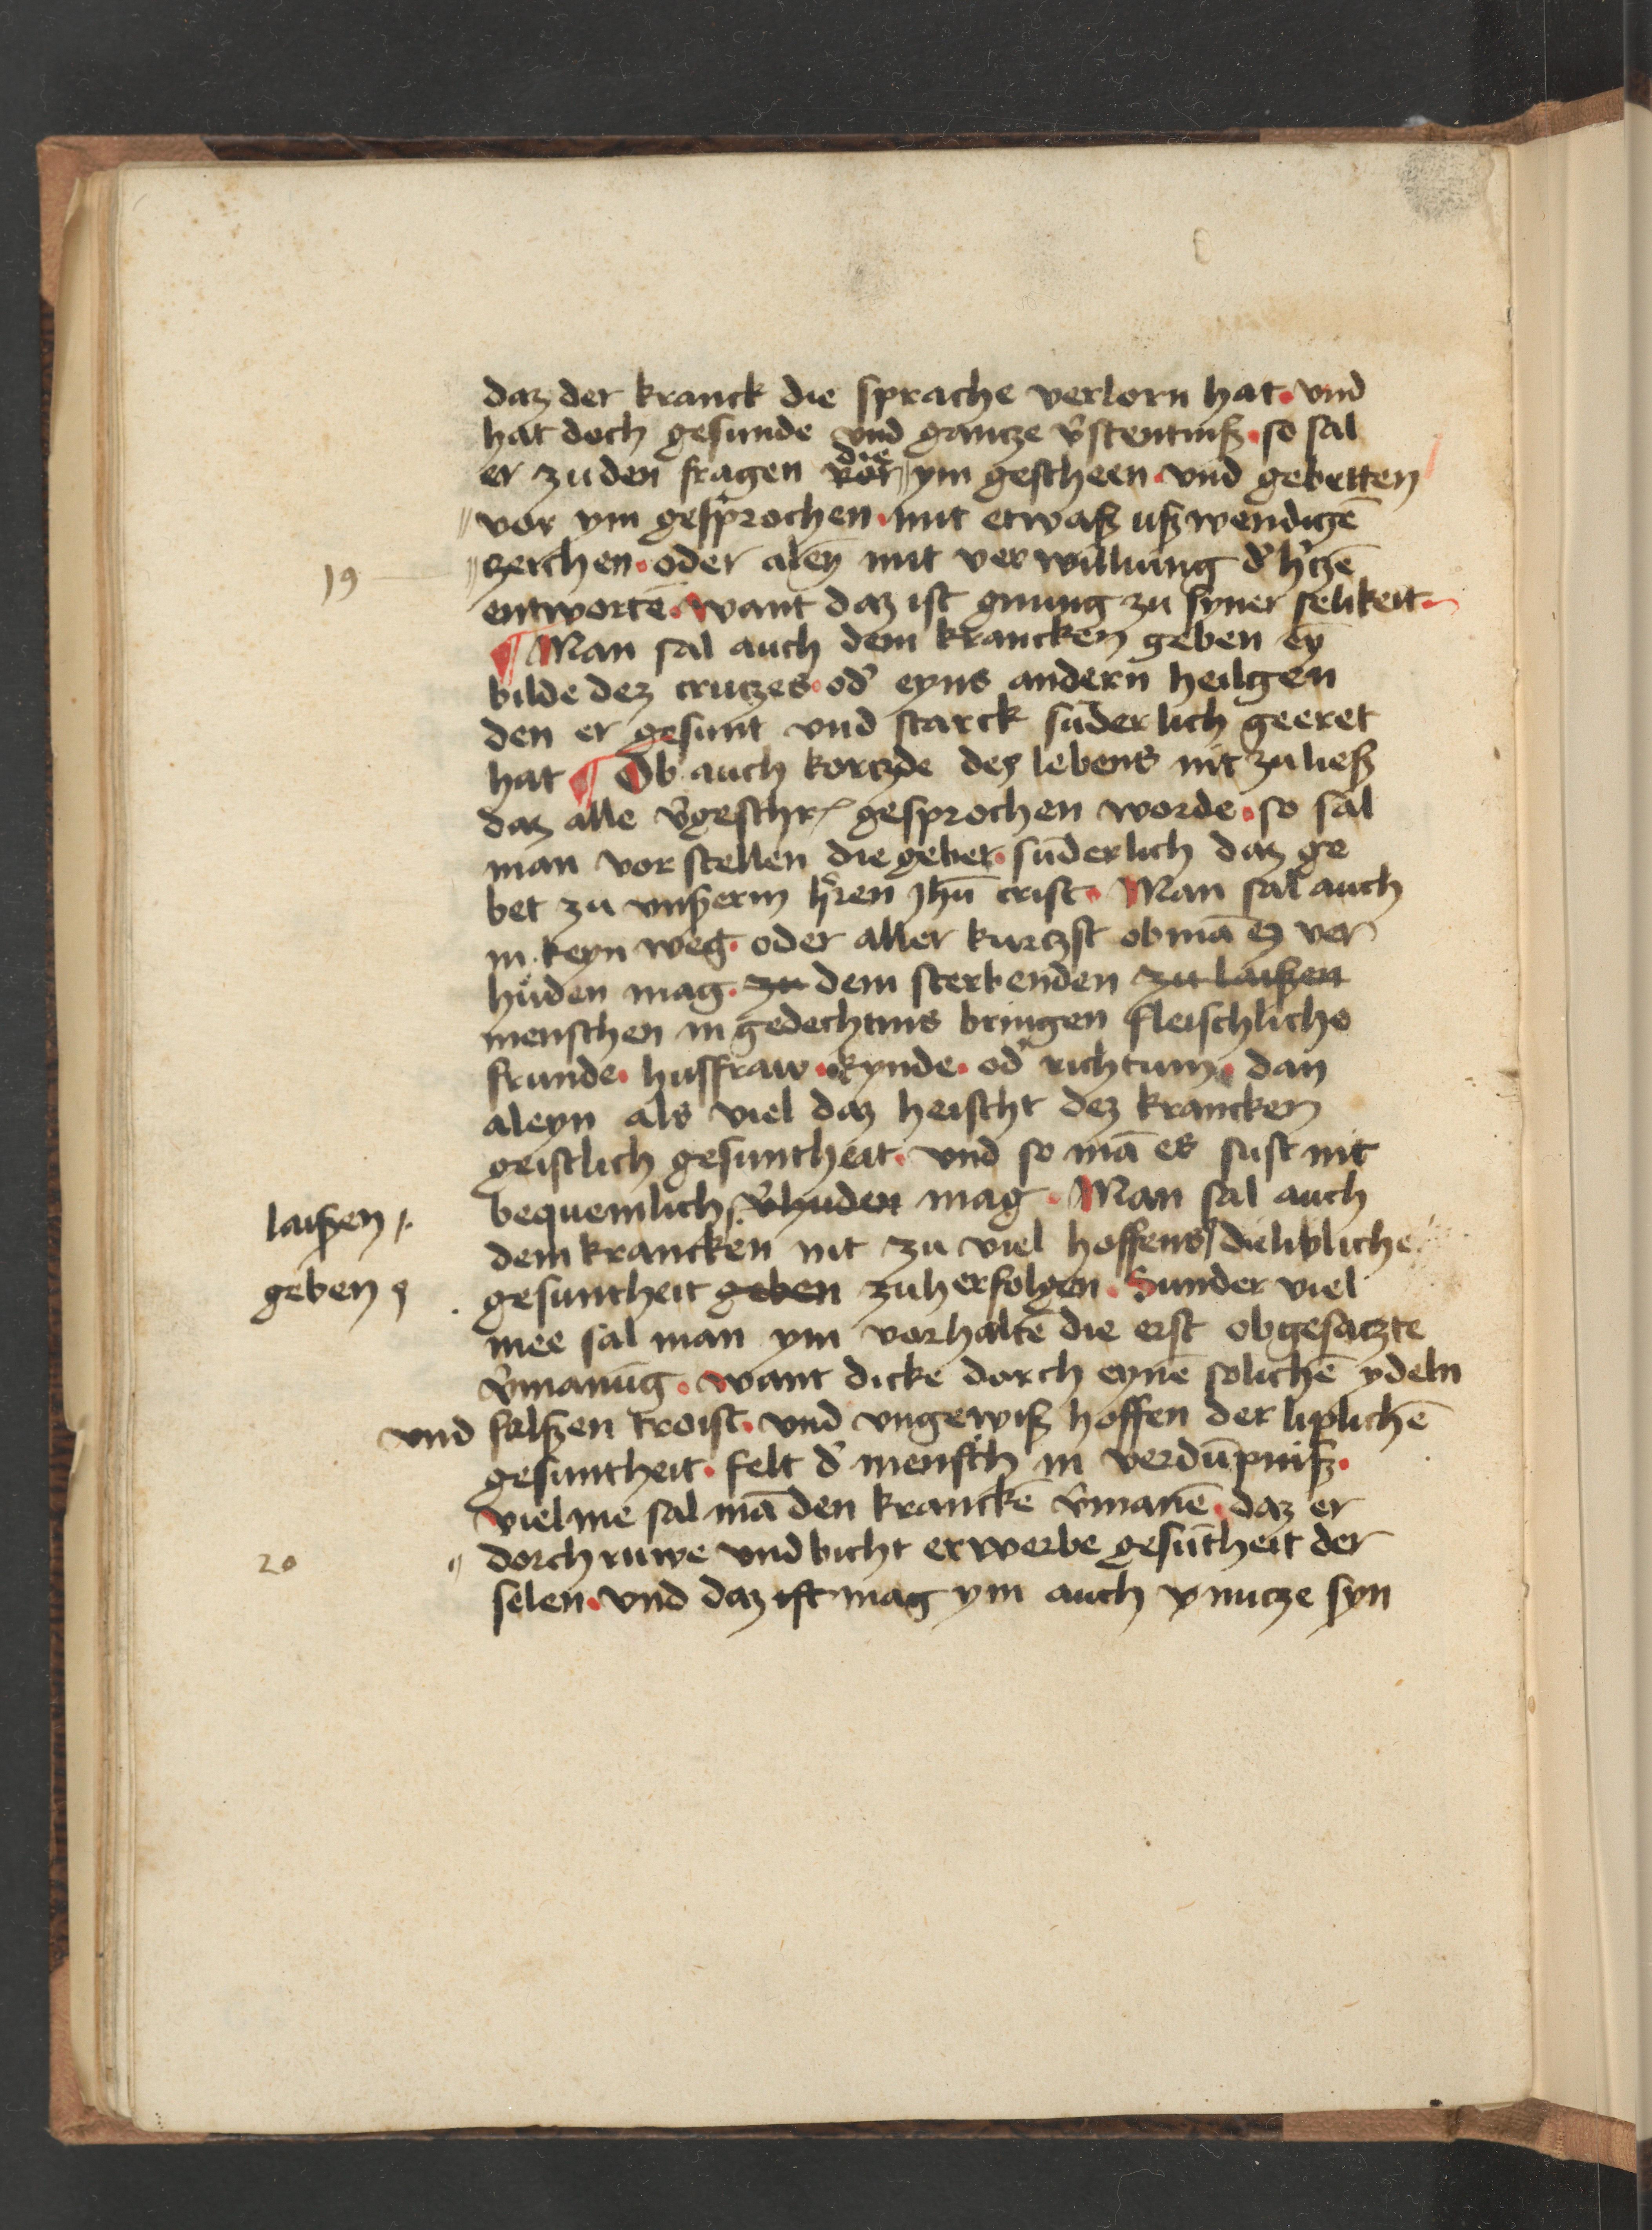 daz der kranck die sprache verlorn hat. vnd
hat doch gesunde vnd gantze v̓stentniß. so sal
die
er zu den fragen vor ym gescheen. vnd gebetten
vor ym gesprochen. mit etwaß ußwendigē
19
zeichen. oder aleÿ mit verwillung d̓ h̓tzē
entwortē. want daz ist gnung zu syner selikeit.
¶ Man sal auch dem krancken geben eȳ
bilde dez crutzes. od̓ eyns andern heilgen
den er gesunt vnd starck sūderlich geeret
hat ¶ Ob auch kortzde dez lebens nit zu ließ
daz alle v̓geschr. gesprochen worde. so sal
man vorstellen die gebet. sūderlich daz ge
bet zu vnßerm h̓ren Jhū crist. Man sal auch
in keyn weg. oder aller kurtzst ob mā eß ver
hüden mag. zu dem sterbenden zu laißen
menschen in gedechtnis bringen fleischliche
frunde. husfraw. kynde. od̓ richtum. dan
aleyn als viel daz heischt dez krancken
geistlich gesuntheit. vnd so mā es sust nit
laißen
bequemlich v̓huden mag. Man sal auch
dem krancken nit zu viel hoffens die lipliche
geben
gesuntheit geben zuherfolgen. Sunder viel
mee sal man ym vorhaltē die erst obgesatzte
v̓manūg. want dicke dorch eynē solichē ydeln
vnd falßen troist. vnd vngewiß hoffen der liplichē
gesuntheit. felt d̓ mensch in verdūpniß.
viel me sal mā den kranckē v̓manē. daz er
20
dorch ruwe vnd bicht erwerbe gesūtheit der
selen. vnd daz ist mag ym auch v̓ nutze syn